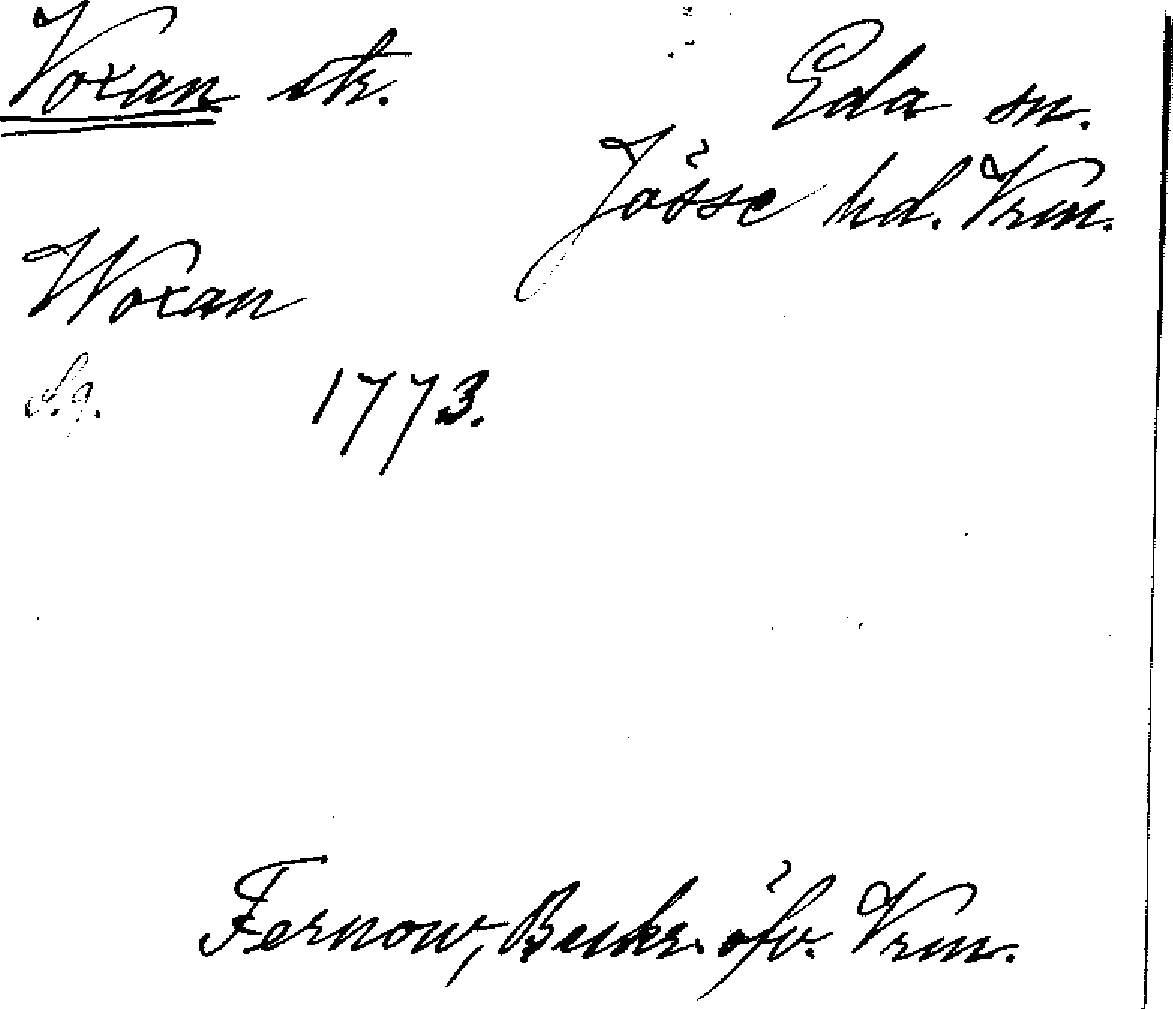 Voxan stk. Eda sn.
Jösse hd. Vrm.
Woxan
S.g. 1773.
Fernow, Beskr. öfv. Vrm.